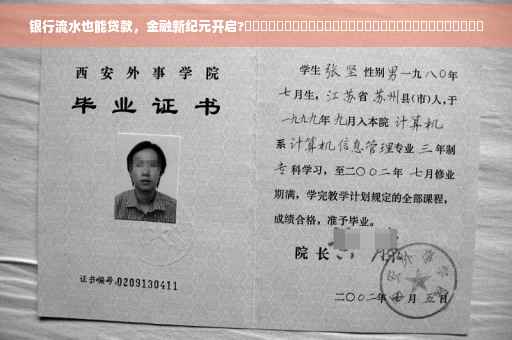 银行流水也能贷款，金融新纪元开启?
西安外事学院
毕业证书
证书编号:0209130411
学生 张坚 性别 男 一九八〇年
七月生，江苏省 苏州 县(市)人，于
一九九九年 九月入本院 计算机
系 计算机信息管理专业 三 年制
专 科学习，至二〇〇二年 七月修业
期满，学完教学计划规定的全部课程，
成绩合格，准予毕业。
院长
二〇〇二年 月 五日